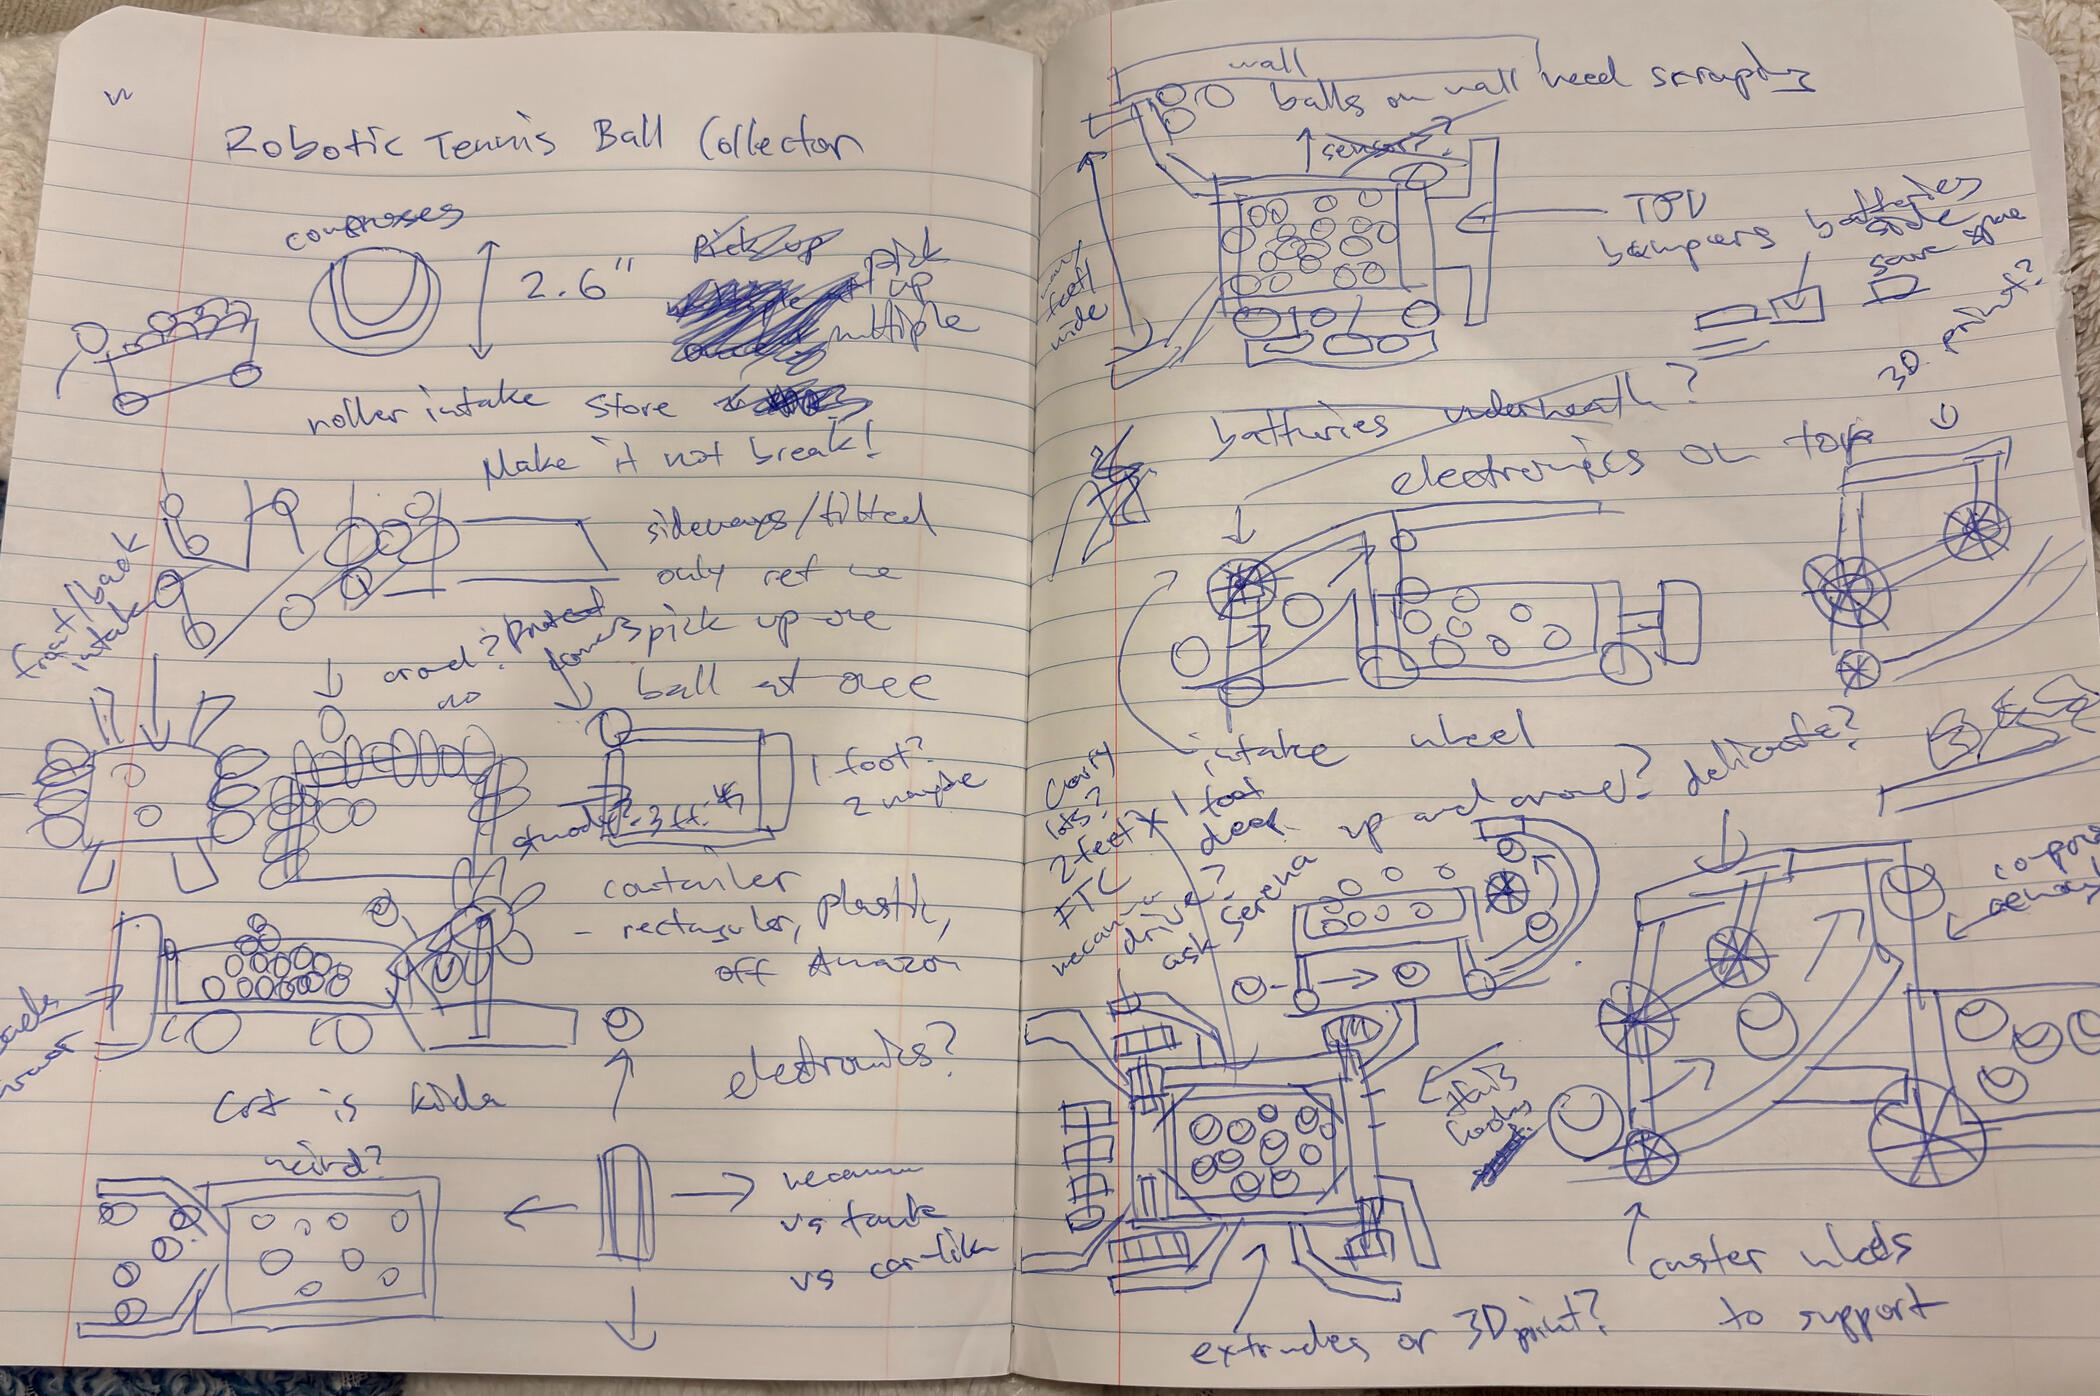 Robotic Tennis Ball Collector
compresses
2.6"
pick up
pick
up
multiple
roller intake store
Make it not break!
front/back
intake
sideways/tilted
only
pick up one
ball at once
around?
no
protect
1 foot?
2 maybe
3 ft.
container
- rectangular, plastic,
off Amazon
electronics?
Cost is kinda
weird?
mecanum
vs tank
vs car-like
wall
balls on wall need scraping
sensor?
many
feet
wide
TPU
bumpers
batteries
side
save space
3D print?
batteries underneath?
electronics on top
intake wheel
Carry
lots?
2 feet x 1 foot
deep
FTC
mecanum
drive?
ask Serena
up and around?
delicate?
this
looks
caster wheels
to support
extrudes or 3D print?